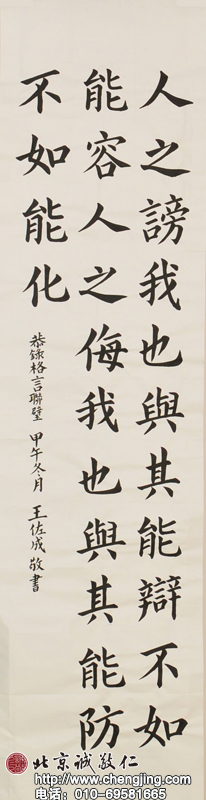 人之謗我也與其能辯不如
能容人之侮我也與其能防
不如能化
恭錄格言聯璧 甲午冬月 王佐成敬書
北京诚敬仁
www.chengjing.com
电话：010-69581665